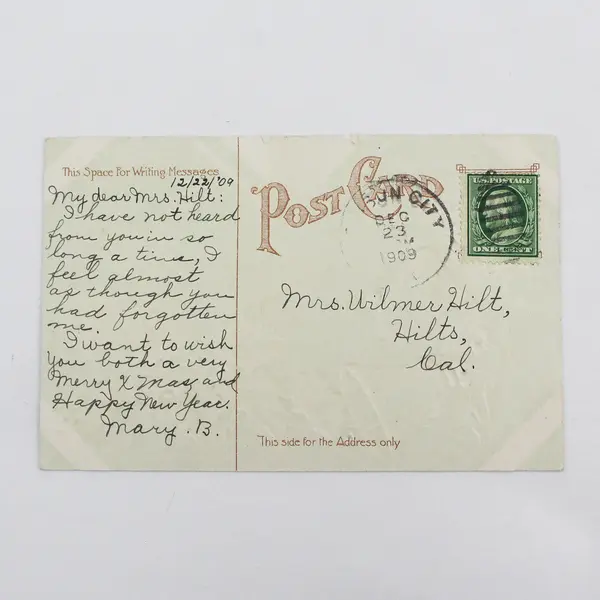 This Space For Writing Messages
12/22/'09
My dear Mrs. Hilt:
I have not heard
from you in so
long a time, I
feel almost
as though you
had forgotten
me.
I want to wish
you both a very
Merry X Mas, and
Happy New Year.
Mary. B.
POST CARD
CITY
DEC
23
1909
U.S. POSTAGE
ONE CENT
Mrs. Wilmer Hilt,
Hilts,
Cal.
This side for the Address only